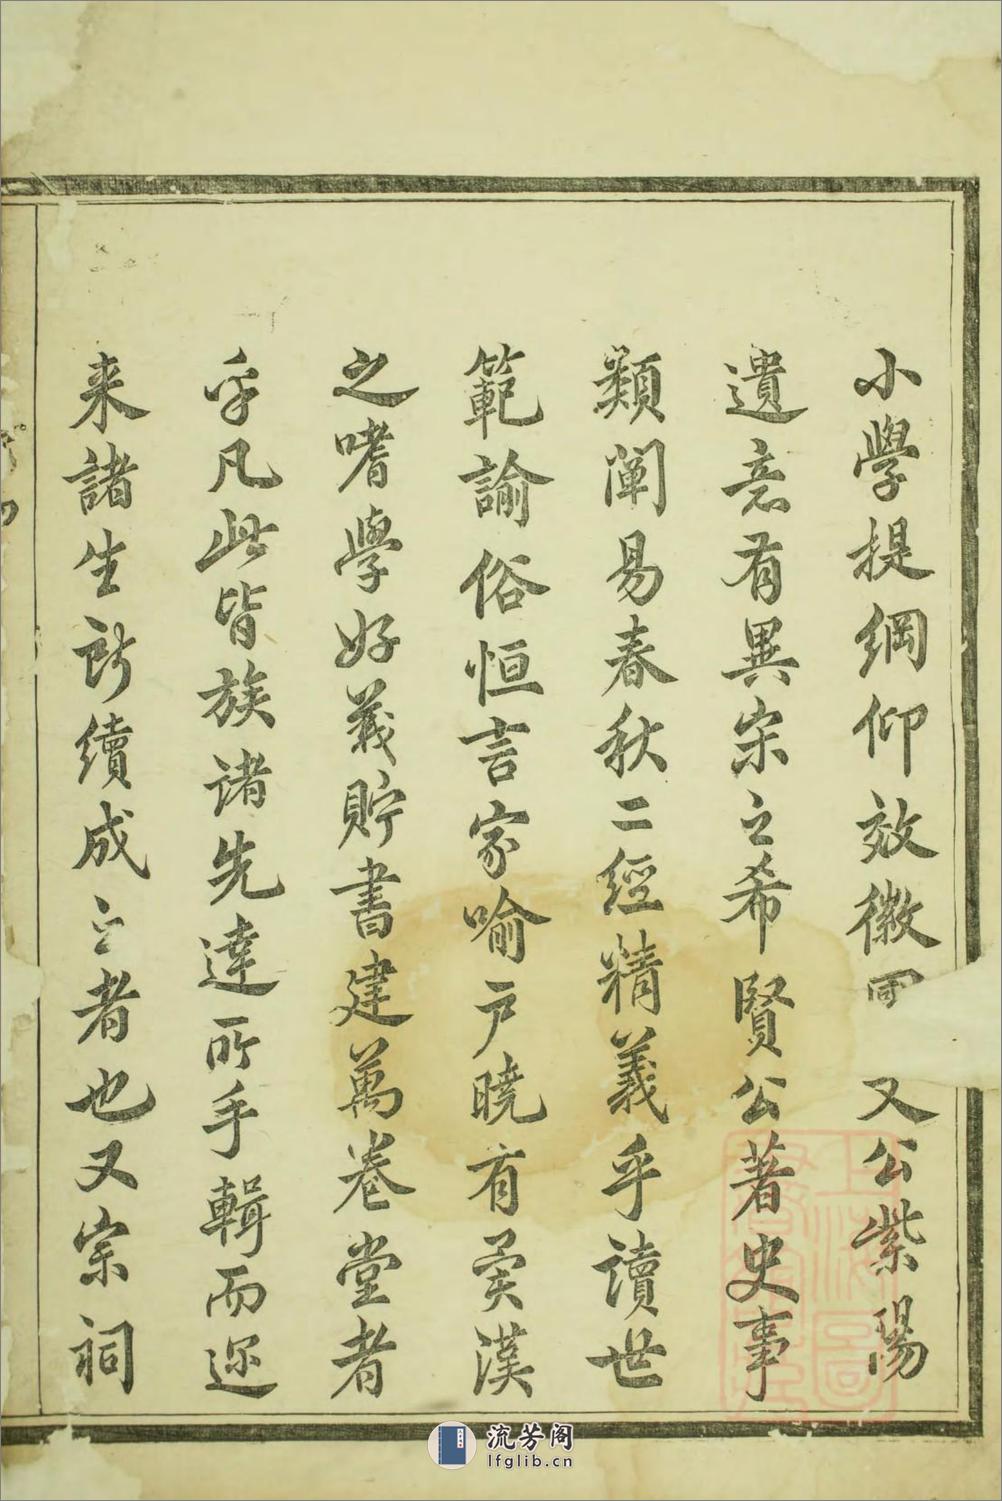 小學提綱仰效徽國文公紫陽
遺意有異宗之希賢公著史事
類闡易春秋二經精義乎讀世
範諭俗恒言家喻户曉有奚漢
之嗜學好義貯書建萬卷堂者
乎凡此皆族诸先達所手輯而迩
来諸生所續成之者也又宗祠
流芳阁
lfglib.cn